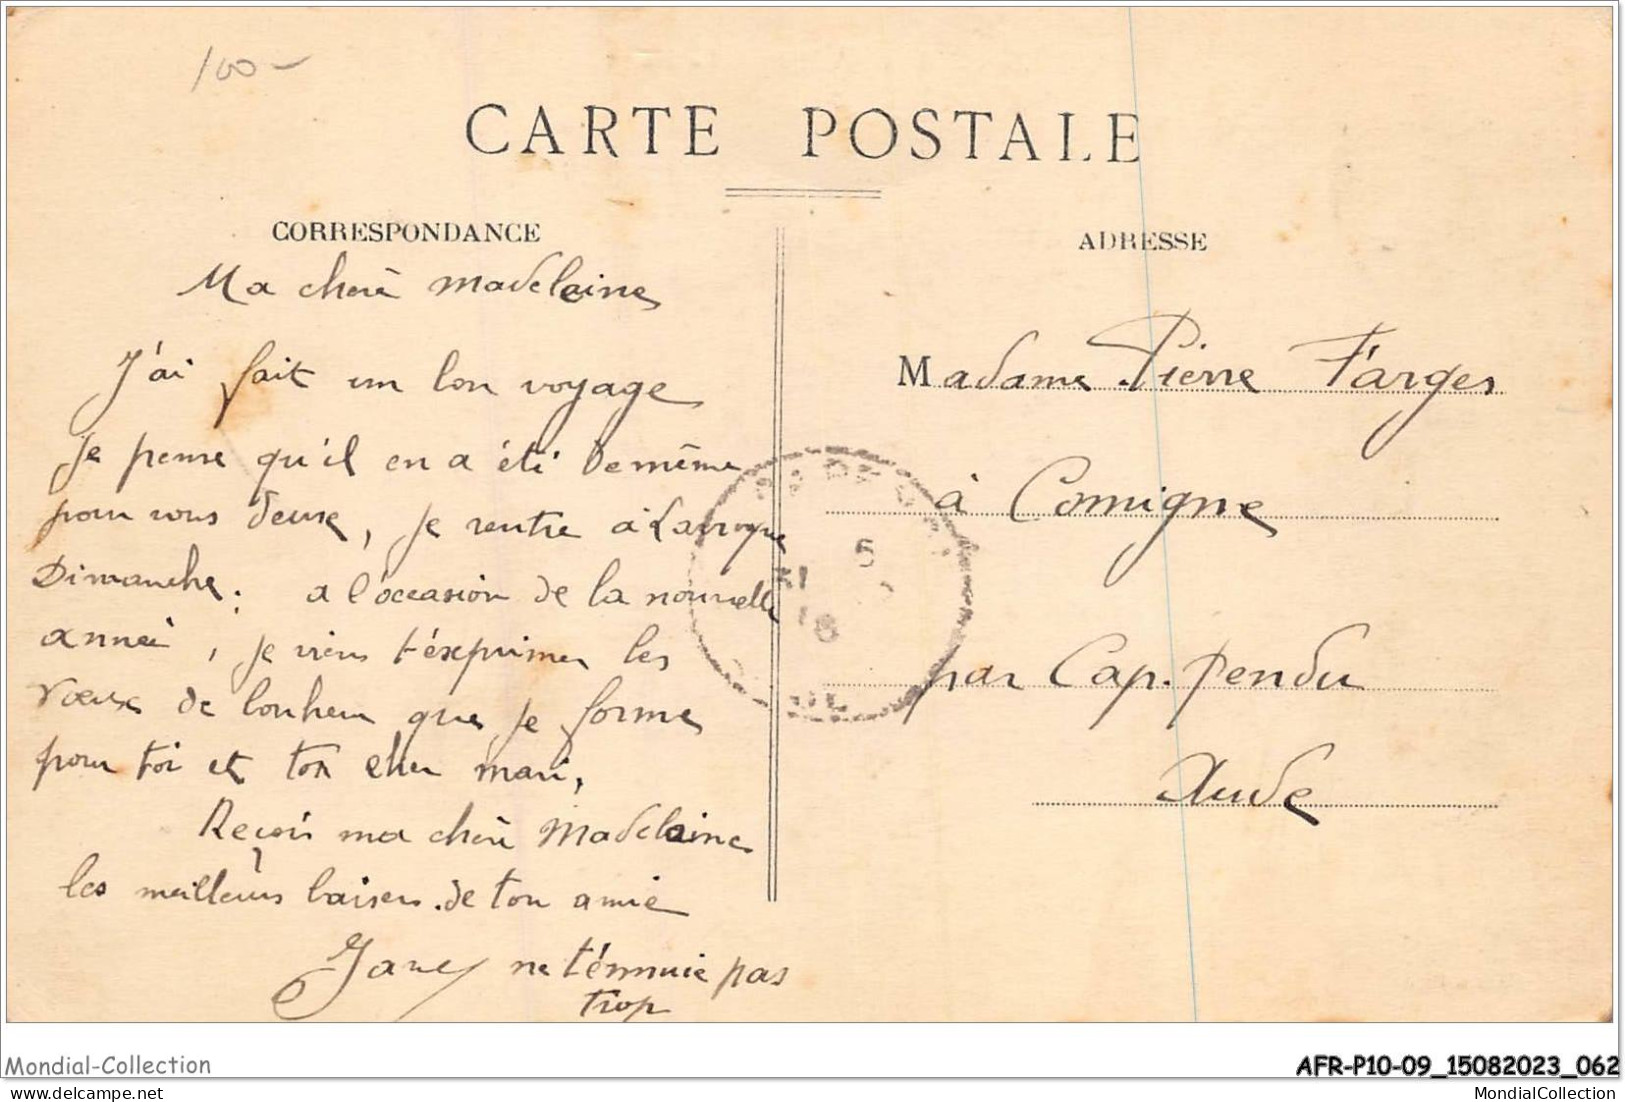 100-
CARTE POSTALE
CORRESPONDANCE
Ma chère Madeleine
J'ai fait un bon voyage
Je pense qu'il en a été de même
pour vous deux, je rentre à Larroque
Dimanche; a l'occasion de la nouvelle
année, je viens t'exprimer les
vœux de bonheur que je forme
pour toi et ton cher mari,
Reçois ma chère Madelaine
les meilleurs baisers de ton amie
Jane ne t'énnuie pas
trop
ADRESSE
Madame Pierre Farges
à Comigne
par Cap. Pendu
Aude
Mondial-Collection
AFR-P10-09_15082023_062
MondialCollection